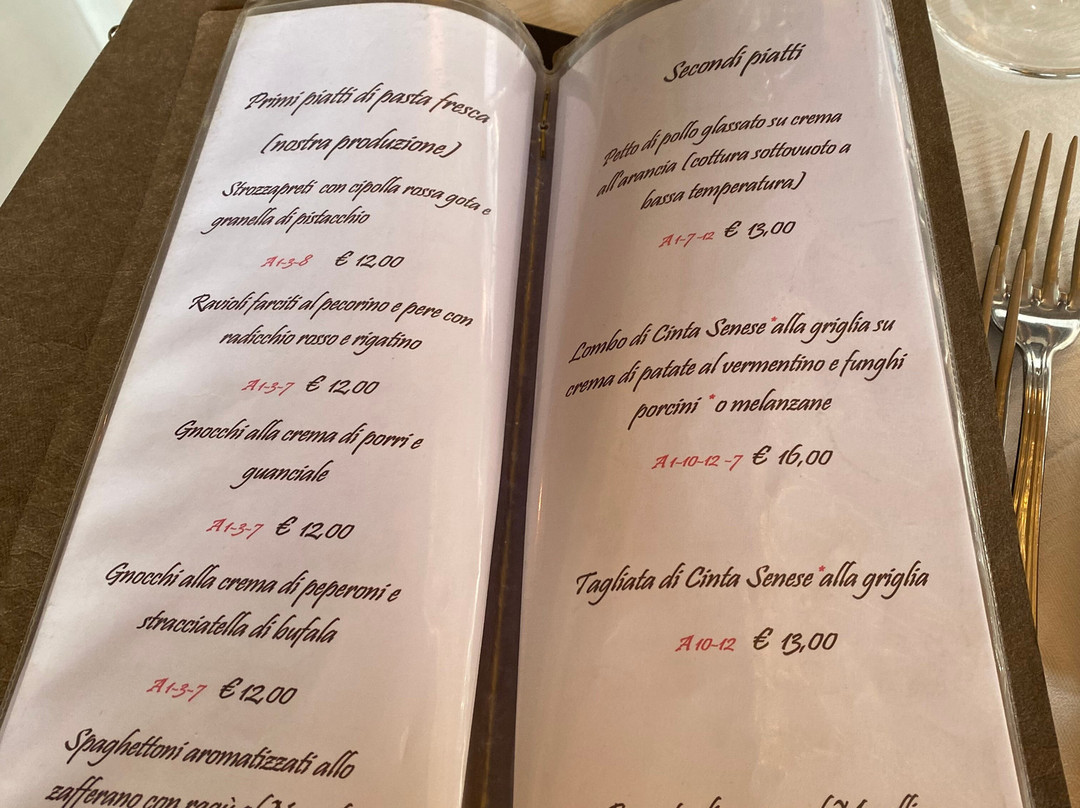 Primi piatti di pasta fresca
(nostra produzione)
Strozzapreti con cipolla rossa gota e
granella di pistacchio
A1-3-8 € 12,00
Ravioli farciti al pecorino e pere con
radicchio rosso e rigatino
A1-3-7 € 12,00
Gnocchi alla crema di porri e
guanciale
A1-3-7 € 12,00
Gnocchi alla crema di peperoni e
stracciatella di bufala
A1-3-7 € 12,00
Spaghettoni aromatizzati allo
zafferano con ragù
Secondi piatti
Petto di pollo glassato su crema
all'arancia (cottura sottovuoto a
bassa temperatura)
A1-7-12 € 13,00
Lombo di Cinta Senese *alla griglia su
crema di patate al vermentino e funghi
porcini *o melanzane
A1-10-12 -7 € 16,00
Tagliata di Cinta Senese *alla griglia
A10-12 € 13,00